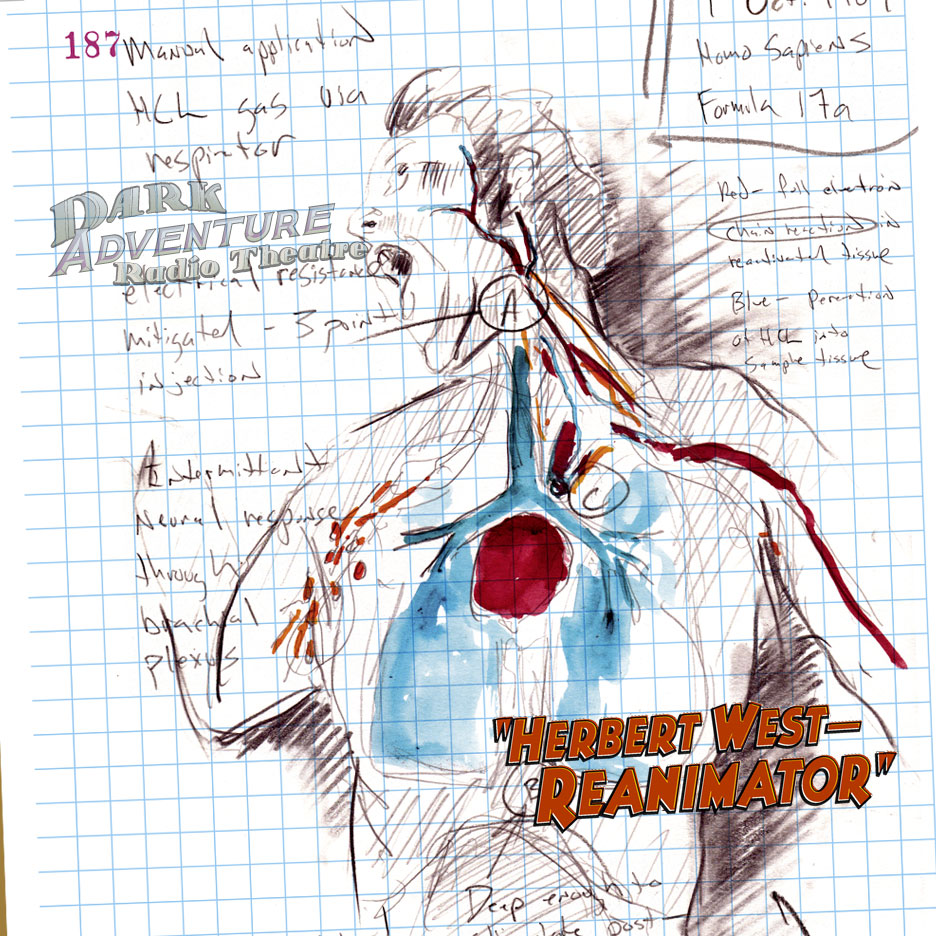 187 Manual application
HCL gas via
respirator
1 Oct. 1909
Homo Sapiens
Formula 17a
DARK
ADVENTURE
Radio Theatre
electrical resistance
mitigated - 3 point
injection
Red- full electron
chain reaction in
reactivated tissue
Blue-
of HCL into
Sample tissue
A
C
Intermittant
Neural response
through
brachial
plexus
"HERBERT WEST—
REANIMATOR"
Deep enough to
past